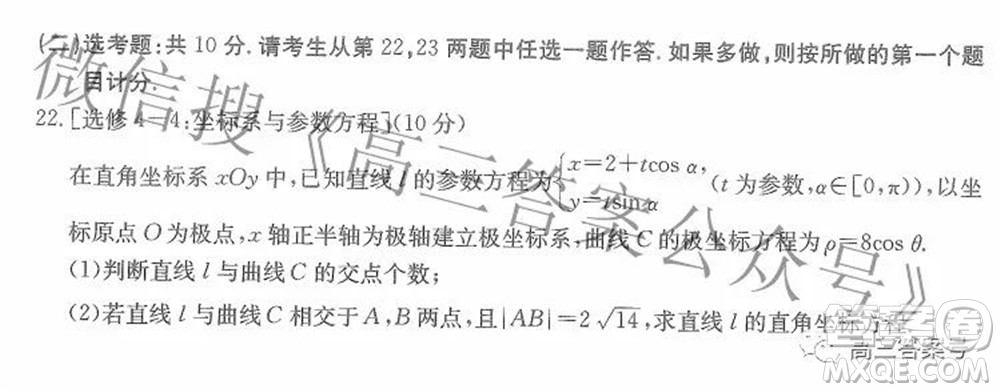 (二)选考题:共10分.请考生从第22,23两题中任选一题作答.如果多做,则按所做的第一个题
目计分.
22.[选修4—4:坐标系与参数方程](10分)
在直角坐标系xOy中,已知直线l的参数方程为{x=2+tcos α, y=tsin α (t为参数,α∈[0,π)),以坐
标原点O为极点,x轴正半轴为极轴建立极坐标系,曲线C的极坐标方程为ρ=8cos θ.
(1)判断直线l与曲线C的交点个数;
(2)若直线l与曲线C相交于A,B两点,且|AB|=2√14,求直线l的直角坐标方程.
微信搜《高三答案公众号》
高三答案号
答案圈
MXQE.COM